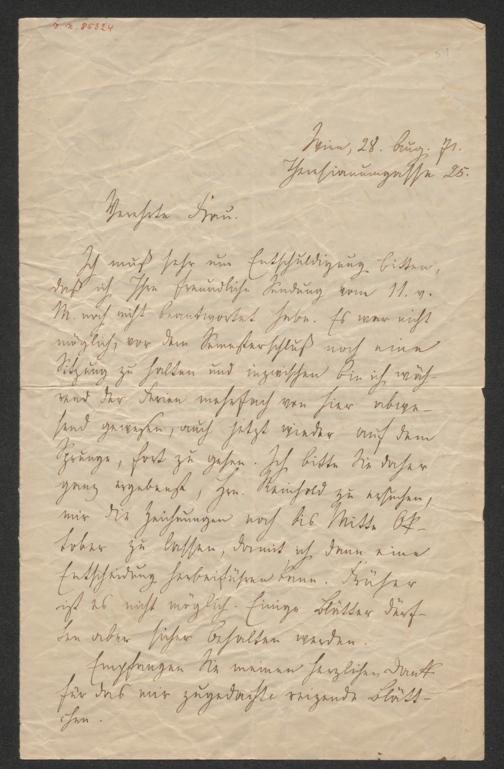 J. N. 85324
51
Wien, 28. Aug. 71.
Theresianumgasse 25.
Verehrte Frau.
Ich muß sehr um Entschuldigung bitten,
daß ich Ihre freundliche Sendung vom 11. v.
M. noch nicht beantwortet habe. Es war nicht
möglich, vor dem Semesterschluß noch eine
Sitzung zu halten und inzwischen bin ich wäh-
rend der Ferien mehrfach von hier abwe-
send gewesen, auch jetzt wieder auf dem
Sprunge, fort zu gehen. Ich bitte Sie daher
ganz ergebenst, Hrn. Reinhold zu ersuchen,
mir die Zeichnungen noch bis Mitte Ok-
tober zu lassen, damit ich dann eine
Entscheidung herbeiführen kann. Früher
ist es nicht möglich. Einige Blätter dürf-
ten aber sicher behalten werden.
Empfangen Sie meinen herzlichen Dank
für das mir zugedachte reizende Blätt-
chen.